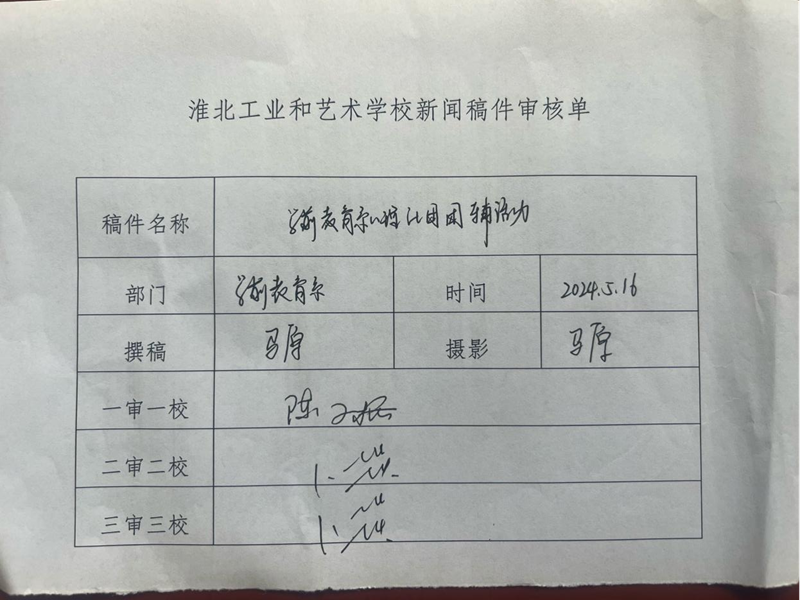 淮北工业和艺术学校新闻稿件审核单
稿件名称 学前教育系心理社团团辅活动
部门 学前教育系 时间 2024.5.16
撰稿 马原 摄影 马原
一审一校 陈
二审二校
三审三校